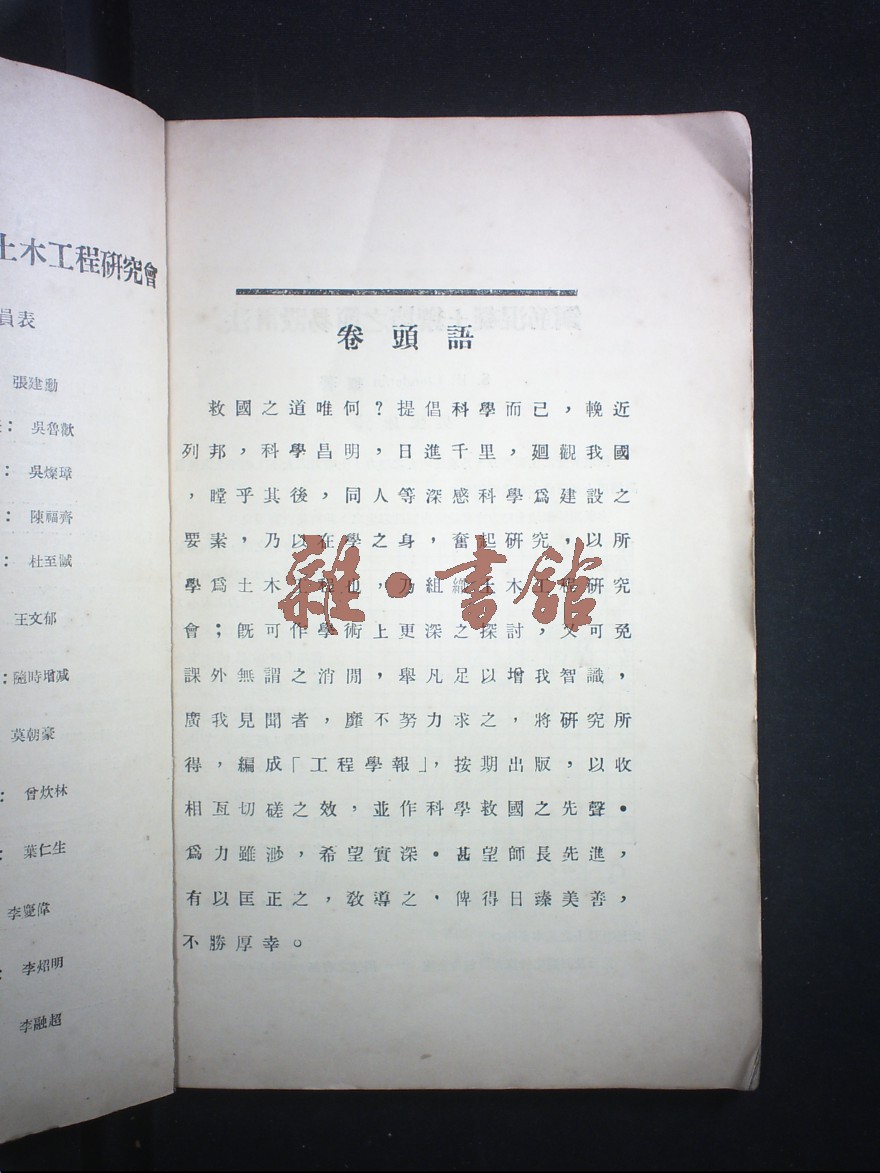 土木工程研究會
員表
張建勳
吳魯歡
吳燦璋
陳福齊
杜至誠
王文郁
：隨時增減
莫朝豪
曾炊林
葉仁生
李慶偉
李炤明
李融超
卷頭語
救國之道唯何？提倡科學而已，輓近
列邦，科學昌明，日進千里，廻觀我國
，瞠乎其後，同人等深感科學爲建設之
要素，乃以在學之身，奮起研究，以所
學爲土木工程也，乃組織土木工程研究
會；旣可作學術上更深之探討，又可免
課外無謂之消閒，舉凡足以增我智識，
廣我見聞者，靡不努力求之，將研究所
得，編成「工程學報」，按期出版，以收
相互切磋之效，並作科學救國之先聲。
爲力雖渺，希望實深。甚望師長先進，
有以匡正之，敎導之，俾得日臻美善，
不勝厚幸。
雜·書館